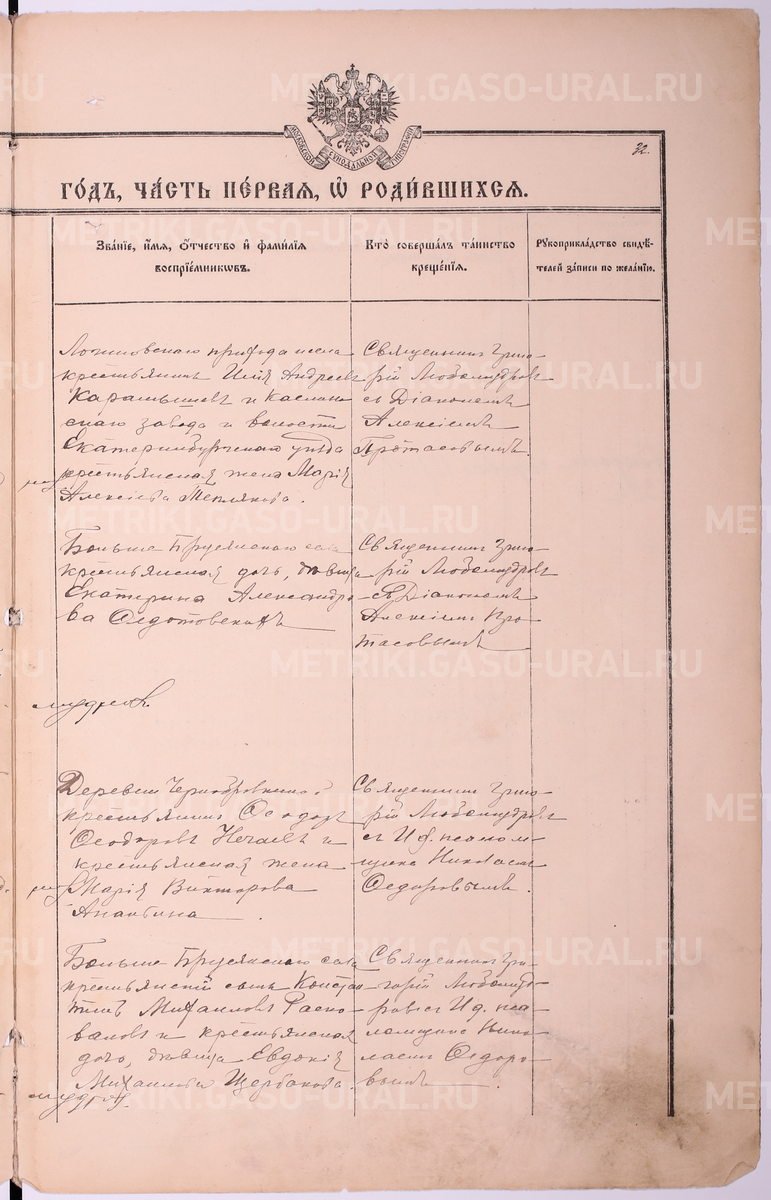 METRIKI.GASO-URAL.RU
МОСКОВСКОЙ СѴНОДАЛЬНОЙ ТИПОГРАФІИ
32.
ГО́ДЪ, ЧА́СТЬ ПЕ́РВАЯ, Ѽ РОДИ́ВШИХСЯ.
Зва́нїе, и́мя, ѻ́тчество и҆ фамѝлїя
воспрїе́мникѡвъ.
Кто̀ соверша́лъ та́инство
креще́нїя.
Рꙋкоприкла́дство свидѣ́-
телей за́писи по жела́нїю.
прихода
крестьянинъ Илія Андреевъ
Карамышевъ и Каслин-
скаго завода и волости
Екатеринбургскаго уѣзда
крестьянская жена Марія
Алексѣева Теплякова.
Священникъ Григо-
рій Любомудровъ
съ Діакономъ
Алексіемъ
Протасовымъ.
Больше Брусянскаго села
крестьянская дочь, дѣвица
Екатерина Александро-
ва
Священникъ Григо-
рій Любомудровъ
съ Діакономъ
Алексіемъ Про-
тасовымъ
Деревни
крестьянинъ Ѳеодоръ
Ѳеодоровъ Нечаевъ и
крестьянская жена
Марія Викторова
Священникъ Григо-
рій Любомудровъ
съ И. д. псалом-
щика Николаемъ
Ѳедоровымъ.
Больше Брусянскаго села
крестьянскій сынъ Констан-
тинъ Михаиловъ Раско-
валовъ и крестьянская
дочь, дѣвица Евдокія
Михаилова Щербакова.
Священникъ Гри-
горій Любомуд-
ровъ съ И. д. пса-
ломщика Нико-
лаемъ Ѳедоро-
вымъ.